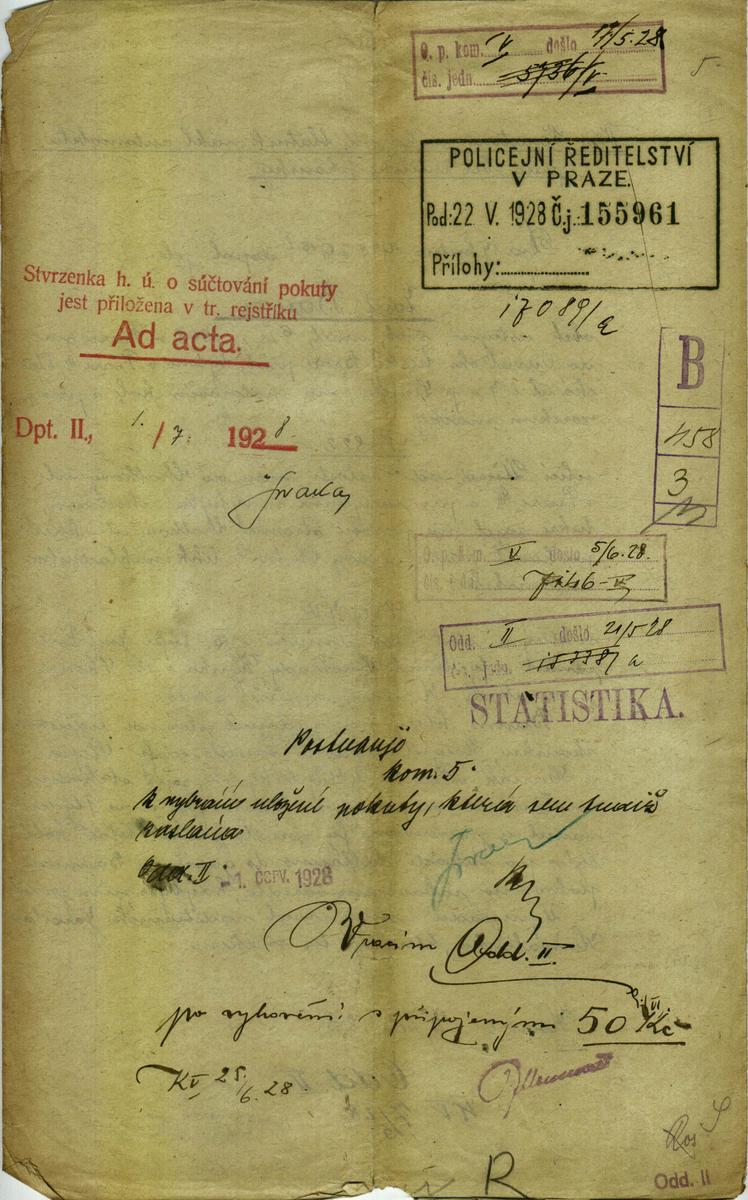 O. p. kom. V došlo 17/5.28
čís. jedn. 5736/V
5.
POLICEJNÍ ŘEDITELSTVÍ
V PRAZE.
Pod: 22 V. 1928 Č.j.: 155961
Přílohy:
17089/a
Stvrzenka h. ú. o súčtování pokuty
jest přiložena v tr. rejstříku
Ad acta.
Dpt. II., 1. / 7. 1928.
B
458
3
O. p. kom. V došlo 5/6.28.
Odd. II došlo 21/5 28
STATISTIKA.
kom. 5.
k vybrání uložené pokuty, která sem budiž
zaslána
Odd. II.
-1. ČERV. 1928
Vracím Odd. II.
po vyhovění s připojenými 50 Kč
KV 25/6.28.
R
Odd. II